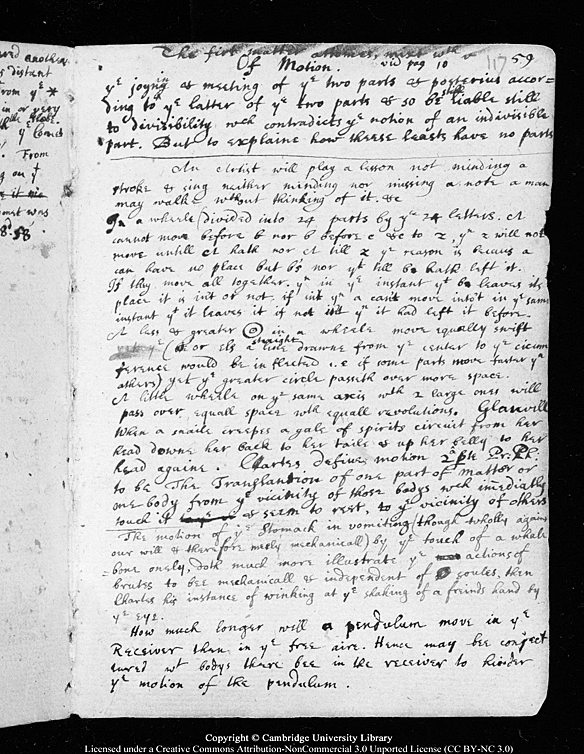 The first matter attomes, mixt wth a
Of Motion. vid pag 10 59
ye joyning in & meeting of ye two parts & posterius accor=
ding to ye latter of ye two parts & so be still liable still
to divisibility wch contradicts ye notion of an indivisible
part. But to explaine how these leasts have no parts
An Artist will play a lesson not minding a
stroke & sing neither minding nor missing a note a man
may walke wthout thinking of it. &c
In a wheele (divided into 24 parts by ye 24 letters. A
cannot move before b nor b before c &c to z. yn z will not
move untill A hath nor A till z ye reason is becaus a
can have no place but b's nor yt till be hath left it.
If they move all together. yn in ye instant yt be leaves its
place it is int or not, if int yn a cant move into't in ye same
instant yt it leaves it if not int yn it had left it before.
A less & greater in a wheele move equally swift
yet ye (or els a streight line drawne from ye center to ye circum
ference would be inflected. i.e if some parts move faster yn
others) yet ye greater circle passeth over more space
A little wheele on ye same axis wth 2 large ones will
pass over equall space wth equall revolutions. Glanvill
When a snaile creepes a gale of spirits circuit from her
head downe her back to her taile & up her belly to her
head againe. Chartes defines motion 2d pte Pr: Ph:
to be The Translantion of one part of matter or
one body from ye vicinity of those bodys wch imediatly
touch it & seem to rest, to ye vicinity of others
The motion of ye Stomack in vomiting (though wholly against
our will & therefore meerly mechanicall) by ye touch of a whale
bone onely, doth much more illustrate ye actions of
brutes to bee mechanicall & independent of soules, then
Chartes his instance of winking at ye shaking of a friends hand by
ye eye.
How much longer will a pendulum move in ye
Receiver then in ye free aire. Hence may bee conject
ured wt bodys there bee in the receiver to hinder
ye motion of the pendulum.
Copyright © Cambridge University Library
Licensed under a Creative Commons Attribution-NonCommercial 3.0 Unported License (CC BY-NC 3.0)